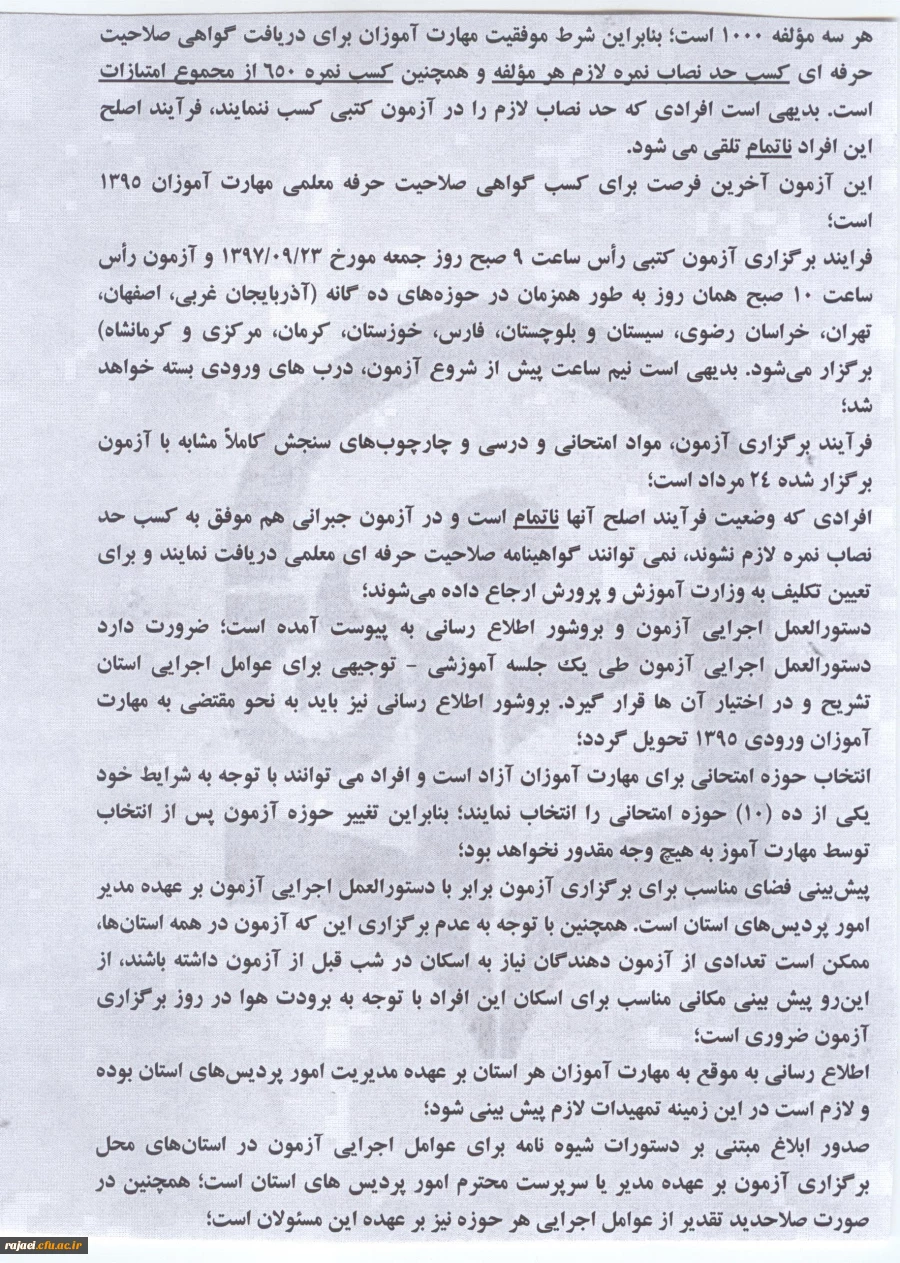 هر سه مؤلفه ۱۰۰۰ است؛ بنابراین شرط موفقیت مهارت آموزان برای دریافت گواهی صلاحیت
حرفه ای کسب حد نصاب نمره لازم هر مؤلفه و همچنین کسب نمره ۶۵۰ از مجموع امتیازات
است. بدیهی است افرادی که حد نصاب لازم را در آزمون کتبی کسب ننمایند، فرآیند اصلح
این افراد ناتمام تلقی می شود.
این آزمون آخرین فرصت برای کسب گواهی صلاحیت حرفه معلمی مهارت آموزان ۱۳۹۵
است؛
فرایند برگزاری آزمون کتبی رأس ساعت ۹ صبح روز جمعه مورخ ۱۳۹۷/۰۹/۲۳ و آزمون رأس
ساعت ۱۰ صبح همان روز به طور همزمان در حوزه‌های ده گانه (آذربایجان غربی، اصفهان،
تهران، خراسان رضوی، سیستان و بلوچستان، فارس، خوزستان، کرمان، مرکزی و کرمانشاه)
برگزار می‌شود. بدیهی است نیم ساعت پیش از شروع آزمون، درب های ورودی بسته خواهد
شد؛
فرآیند برگزاری آزمون، مواد امتحانی و درسی و چارچوب‌های سنجش کاملاً مشابه با آزمون
برگزار شده ۲۴ مرداد است؛
افرادی که وضعیت فرآیند اصلح آنها ناتمام است و در آزمون جبرانی هم موفق به کسب حد
نصاب نمره لازم نشوند، نمی توانند گواهینامه صلاحیت حرفه ای معلمی دریافت نمایند و برای
تعیین تکلیف به وزارت آموزش و پرورش ارجاع داده می‌شوند؛
دستورالعمل اجرایی آزمون و بروشور اطلاع رسانی به پیوست آمده است؛ ضرورت دارد
دستورالعمل اجرایی آزمون طی یک جلسه آموزشی - توجیهی برای عوامل اجرایی استان
تشریح و در اختیار آن ها قرار گیرد. بروشور اطلاع رسانی نیز باید به نحو مقتضی به مهارت
آموزان ورودی ۱۳۹۵ تحویل گردد؛
انتخاب حوزه امتحانی برای مهارت آموزان آزاد است و افراد می توانند با توجه به شرایط خود
یکی از ده (۱۰) حوزه امتحانی را انتخاب نمایند؛ بنابراین تغییر حوزه آزمون پس از انتخاب
توسط مهارت آموز به هیچ وجه مقدور نخواهد بود؛
پیش‌بینی فضای مناسب برای برگزاری آزمون برابر با دستورالعمل اجرایی آزمون بر عهده مدیر
امور پردیس‌های استان است. همچنین با توجه به عدم برگزاری این که آزمون در همه استان‌ها،
ممکن است تعدادی از آزمون دهندگان نیاز به اسکان در شب قبل از آزمون داشته باشند، از
این‌رو پیش بینی مکانی مناسب برای اسکان این افراد با توجه به برودت هوا در روز برگزاری
آزمون ضروری است؛
اطلاع رسانی به موقع به مهارت آموزان هر استان بر عهده مدیریت امور پردیس‌های استان بوده
و لازم است در این زمینه تمهیدات لازم پیش بینی شود؛
صدور ابلاغ مبتنی بر دستورات شیوه نامه برای عوامل اجرایی آزمون در استان‌های محل
برگزاری آزمون بر عهده مدیر یا سرپرست محترم امور پردیس های استان است؛ همچنین در
صورت صلاحدید تقدیر از عوامل اجرایی هر حوزه نیز بر عهده این مسئولان است؛
rajaei.cfu.ac.ir